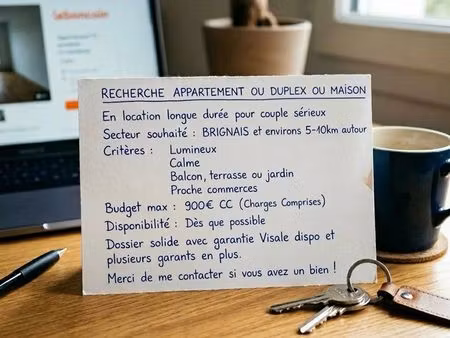 RECHERCHE APPARTEMENT OU DUPLEX OU MAISON
En location longue durée pour couple sérieux
Secteur souhaité : BRIGNAIS et environs 5-10km autour
Critères : Lumineux
Calme
Balcon, terrasse ou jardin
Proche commerces
Budget max : 900€ CC (Charges Comprises)
Disponibilité : Dès que possible
Dossier solide avec garantie Visale dispo et
plusieurs garants en plus.
Merci de me contacter si vous avez un bien !